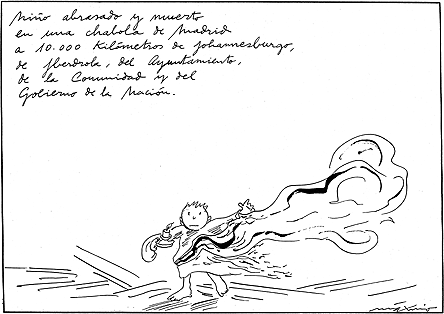 Niño abrasado y muerto
en una chabola de Madrid
a 10.000 Kilómetros de Johannesburgo,
de Iberdrola, del Ayuntamiento,
de la Comunidad y del
Gobierno de la Nación.
máximo